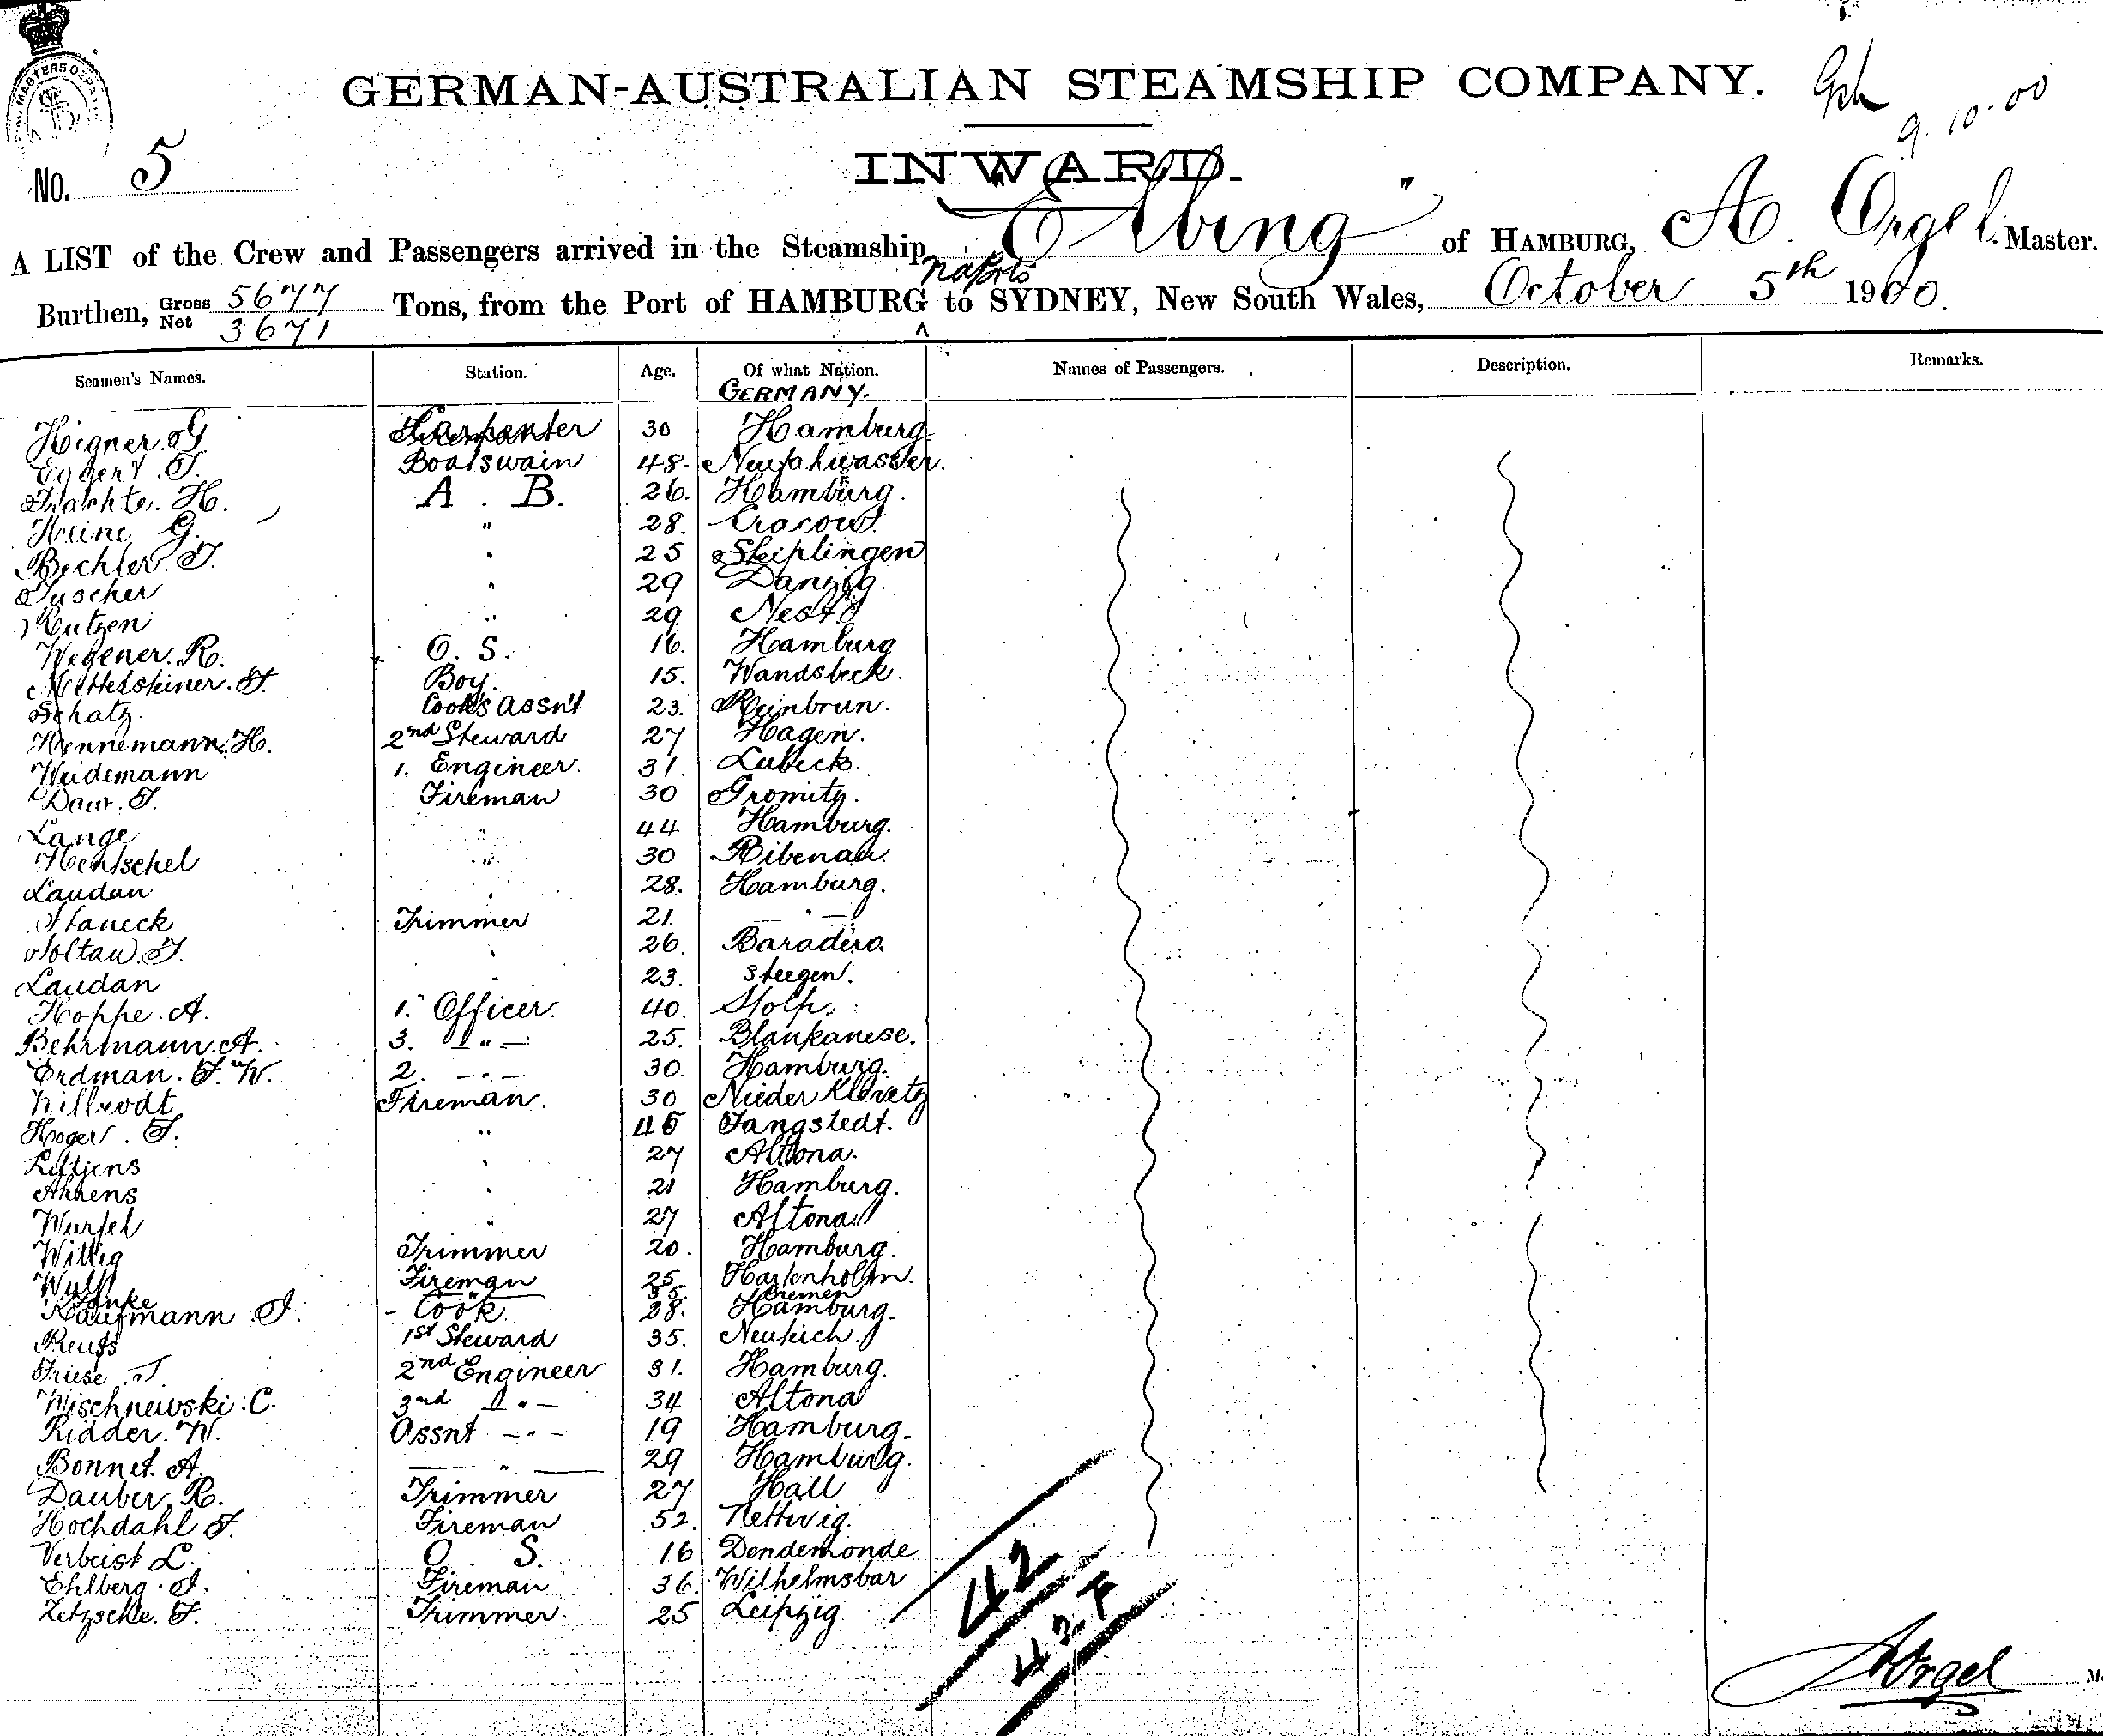 GERMAN-AUSTRALIAN STEAMSHIP COMPANY.
9.10.00
INWARD.
No. 5
A LIST of the Crew and Passengers arrived in the Steamship "Elbing" of HAMBURG, A. Orgel. Master.
Burthen, Gross 5677 Net 3671 Tons, from the Port of HAMBURG to SYDNEY, New South Wales, October 5th 1900.
Seamen's Names. Station. Age. Of what Nation. Names of Passengers. Description. Remarks.
GERMANY.
Carpenter 30 Hamburg.
Eggert. Boatswain 48. Neufahrwasser.
H. A. B. 26. Hamburg.
Heine G. " 28. Cracow.
Bechler. " 25
Tuscher " 29 Danzig.
Rutzen " 29 Nest.
Wegener. R. O. S. 16. Hamburg
Boy. 15. Wandsbeck.
Schatz. Cook's Assnt 23. Reinbrun.
Hennemann. H. 2nd Steward 27 Hagen.
Weidemann 1. Engineer. 31. Lubeck.
Fireman 30 Gromitz.
Lange " 44 Hamburg.
Hentschel " 30 Ribenau.
Laudan " 28. Hamburg.
Staneck Trimmer 21. — " —
Soltau. " 26. Baradero.
Laudan " 23. Steegen.
Hoppe. A. 1. Officer. 40. Stolp.
Behrmann. A. 3. — " — 25. Blankanese.
Erdman. F. W. 2. — " — 30. Hamburg.
Hillrodt Fireman. 30 Nieder
" 45 Tangstedt.
Lüttjens " 27 Altona.
Ahrens " 21 Hamburg.
Wurfel " 27 Altona
Willig Trimmer 20. Hamburg.
Wulf Fireman 25. Hartenholm.
" 35. Bremen
Kaufmann. Cook. 28. Hamburg.
Preuss 1st Steward 35. Neukich.
Friese 2nd Engineer 31. Hamburg.
Wischnewski. C. 3rd — " — 34 Altona
Ridder. W. Assnt — " — 19 Hamburg.
Bonnet. A. — " — 29 Hamburg.
Dauber. R. Trimmer 27 Hall
Hochdahl F. Fireman 52. Nettwig.
Verbeist L. O. S. 16 Dendemonde
Ehlberg. Fireman 36. Wilhelmsbar
Zetzsche. F. Trimmer. 25 Leipzig
42
42 F
A Orgel